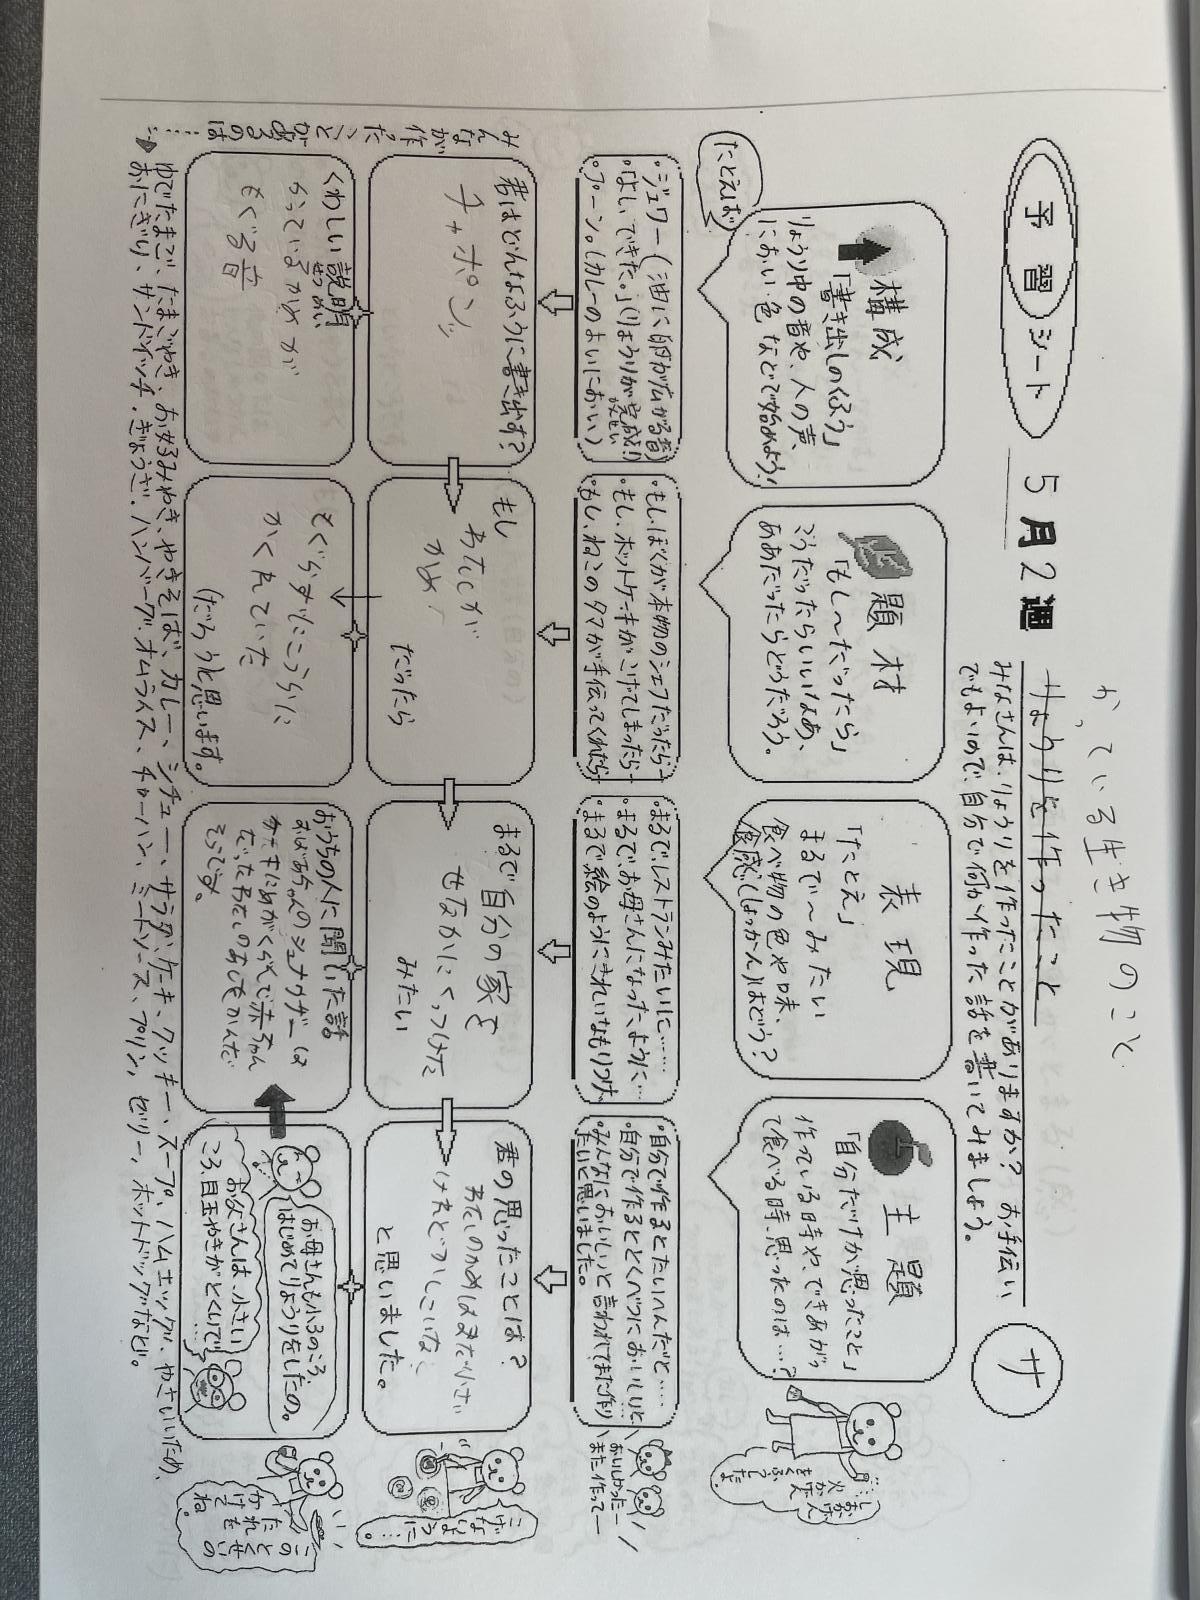 かっている生き物のこと
予習シート
5月2週
りょうりを作ったこと
サ
みなさんは、りょうりを作ったことがありますか？お手伝い
でもよいので、自分で何か作った話を書いてみましょう。
構成
「書き出しのくふう」
りょうり中の音や、人の声、
におい、色などで始めよう！
題材
「もし〜だったら」
こうだったらいいなあ、
ああだったらどうだろう。
表現
「たとえ」
まるで〜みたい
食べ物の色や味、
食感（しょっかん）はどう？
主題
「自分だけが思ったこと」
作っている時や、できあがっ
て食べる時、思ったのは…？
たとえば
・ジュワー（油に卵が広がる音）
・「よし、できた。」（りょうりが完成！）
かんせい
・プーン。（カレーのよいにおい）
・もし、ぼくが本物のシェフだったら…
・もし、ホットケーキがこげてしまったら…
・もし、ねこのタマが手伝ってくれたら…
・まるで、レストランみたいに……
・まるで、お母さんになったように…
・まるで絵のようにきれいなもりつけ。
・自分で作るとたいへんだと……
・自分で作るととくべつにおいしいと、
・みんなにおいしいと言われてまた作り
たいと思いました。
おいしかったー
また作ってー
君はどんなふうに書き出す？
チャポンッ
もし
わたしが
かめ
だったら
まるで
自分の家を
せなかにくっつけた
みたい
君の思ったことは？
わたしのかめはまだ小さい
けれどかしこいな、
と思いました。
こげないように…。
くわしい説明
せつめい
かっているかめが
もぐる音
もぐらずにこうらに
かくれていた
（だろう）と思います。
おうちの人に聞いた話
おばあちゃんのシュナウザーは
だった わたしのあしをかんだ
そうです。
お母さんも小3のころ、
はじめてりょうりをしたの。
お父さんは、小さい
ころ、目玉やきがとくいで
……？
このとくせいの
たれをかけてね。
みんなが作ったことがあるのは……
→ゆでたまご、たまごやき、お好みやき、やきそば、カレー、シチュー、サラダ、ケーキ、クッキー、スープ、ハムエッグ、やさいいため、
おにぎり、サンドイッチ、ぎょうざ、ハンバーグ、オムライス、チャーハン、ミートソース、プリン、ゼリー、ホットドッグなど。